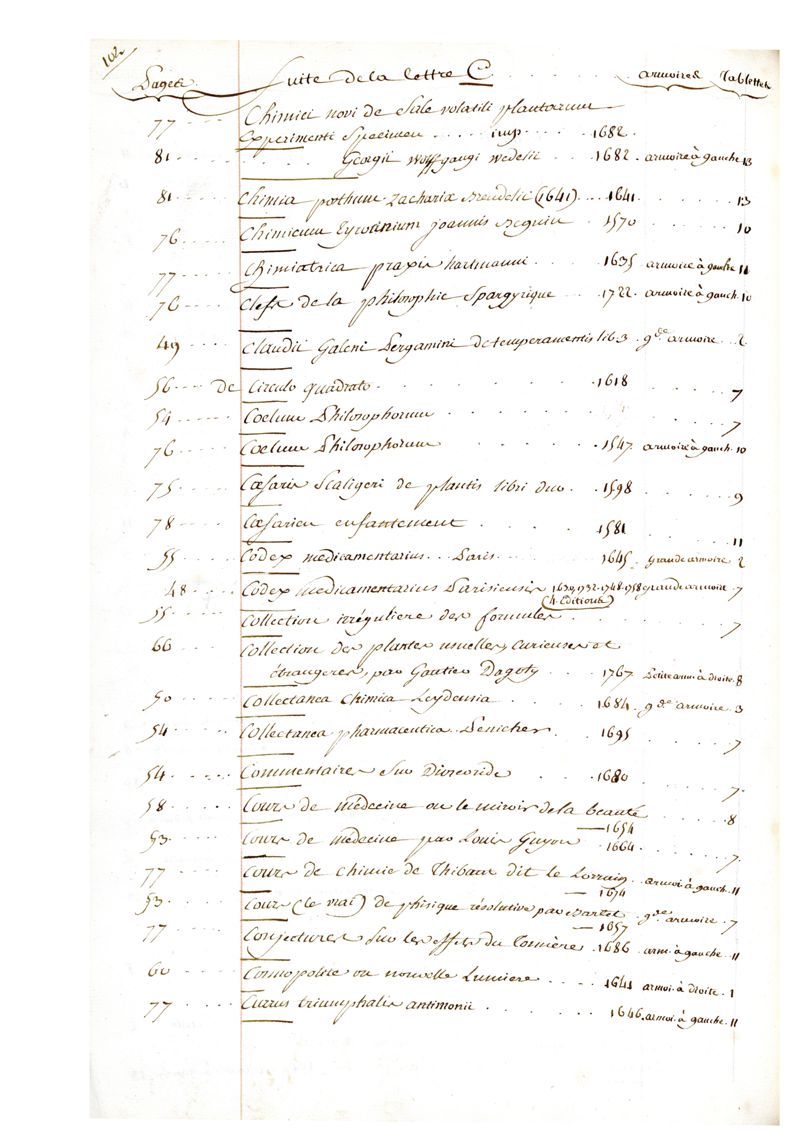 102
Pages Suite de la lettre C armoires Tablettes
77 Chimici novi de Sale volatili plantarum
Experimenti Specimen imp 1682
81 Georgii Wolffgangi Wedelii 1682 armoire à gauche 13
81 Chimia posthum. Zachariæ Brendelii (1641) 1641 13
76 Chimicum Tyrocinium joannis Beguin 1570 10
77 Chimiatrica praxis hartmanni 1635 armoire à gauche 11
76 Clefs de la philosophie Spargyrique 1722 armoire à gauch. 10
49 Claudii Galeni Pergamini de temperamentis lib 3 gde armoire 2
56 de Circulo quadrato 1618 7
54 Coelum Philosophorum 7
76 Coelum Philosophorum 1547 armoire à gauch. 10
75 Cæsaris Scaligeri de plantis libri duo 1598 9
78 Cæsarien enfantement 1581 11
55 Codex medicamentarius Paris 1645 grande armoire 2
48 Codex medicamentarius Parisiensis 1639, 1732. 1748. 1758 grande armoire 7
(4 Editions)
55 Collection irréguliere des formules 7
66 Collection des plantes usuelles, curieuses et
étrangeres, par Gautier Dagoty 1767 Petite arm. à droite 8
50 Collectanea Chimica Leydensia 1684 gde armoire 3
54 Collectanea pharmaceutica Penicher 1695 7
54 Commentaires sur Dioscoride 1680 7
58 Cours de médecine ou le miroir de la beauté 8
1654
53 Cours de médecine par Louis Guyon 1664 7
77 Cours de Chimie de Thibaut dit le Lorrain armoi à gauch. 11
1674
53 Cours (le vrai) de phisique résolutive par Barlet gde armoire 7
1657
77 Conjectures sur les effets du Tonnérre 1686 arm. à gauche 11
60 Cosmopolite ou nouvelle Lumiere 1641 armoi. à droite 1
77 Currus triumphalis antimonii 1646 armoi. à gauche 11